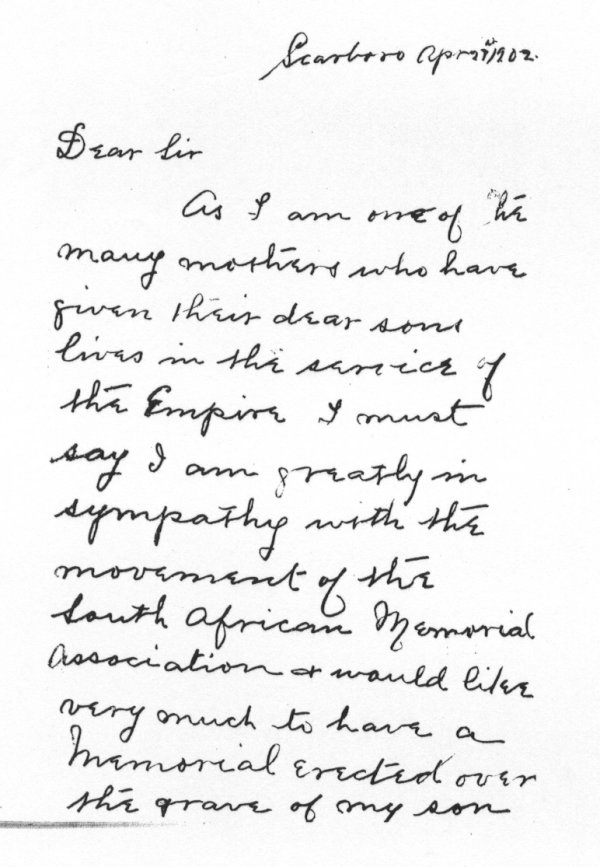 Scarboro Apr 22nd/1902.
Dear Sir
As I am one of the
many mothers who have
given their dear sons
lives in the service of
the Empire I must
say I am greatly in
sympathy with the
movement of the
South African Memorial
Association & would like
very much to have a
Memorial erected over
the grave of my son